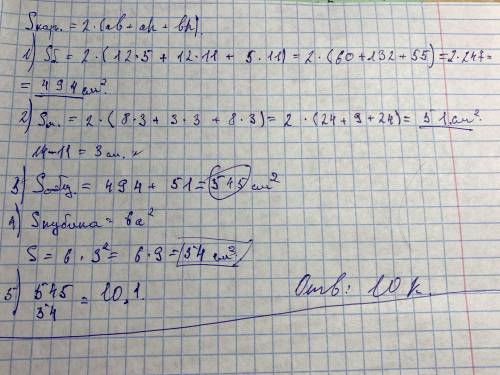 Sкор. = 2·(ab + ah + bh).
1) SБ = 2·(12·5 + 12·11 + 5·11) = 2·(60+132+55) = 2·247=
= 494 см².
2) Sм. = 2·(8·3 + 3·3 + 8·3) = 2·(24+9+24) = 51 см².
14-11 = 3 см.
3) Sобщ. = 494 + 51 = 545 см²
4) Sкубика = 6a²
S = 6·3² = 6·9 = 54 см².
5) 545/54 = 10,1.
Отв: 10 к.